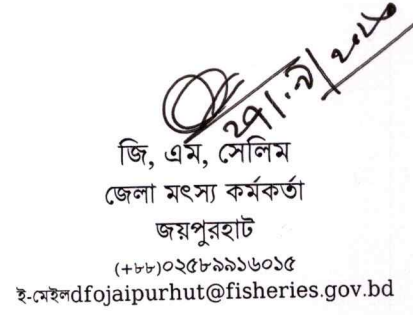 জি, এম, সেলিম
জেলা মৎস্য কর্মকর্তা
জয়পুরহাট
(+৮৮)০২৫৮৯৯১৬০১৫
ই-মেইলdfojaipurhut@fisheries.gov.bd